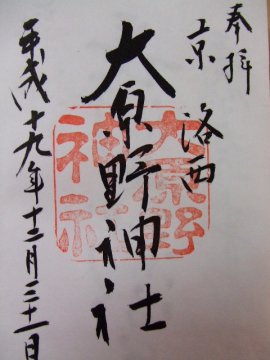 奉拝
京 洛西
大原野神社
大原野
神社
平成十九年十二月三十一日